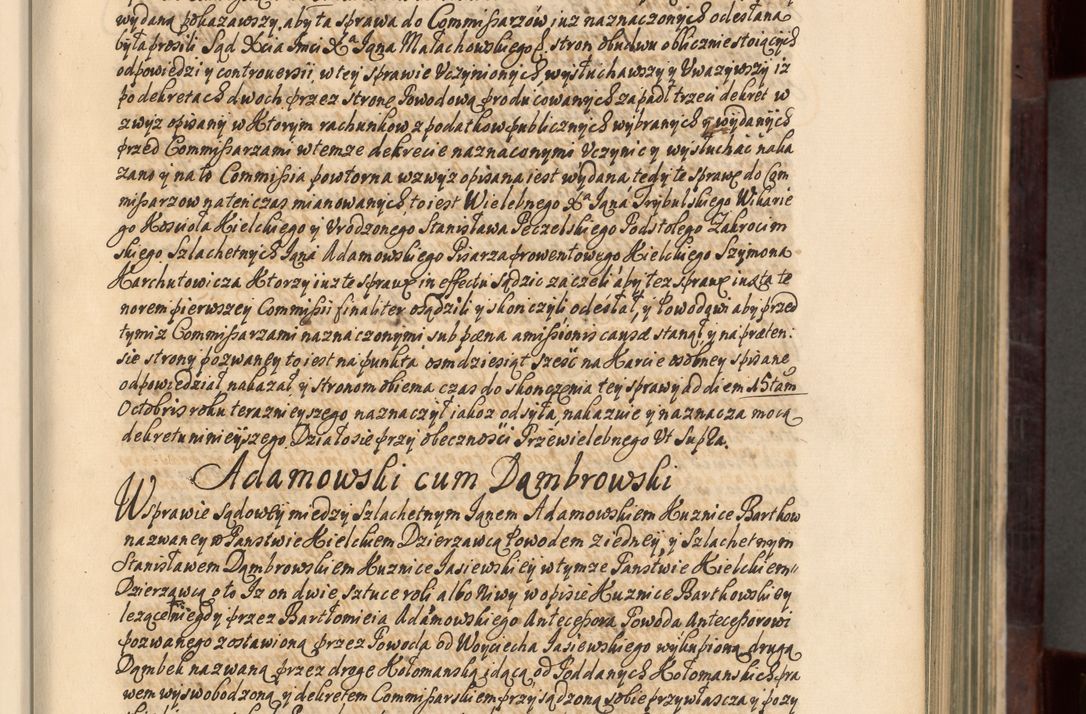 wydaną pokazawszy, aby ta sprawa do Commissarzow iuz naznaczonych odesłana
była prosili Sąd Xcia Imci Xa Iana Małachowskiego &. stron obudwu oblicznie stoiących
odpowiedzi y controuersii, w tey sprawie Vczynionych wysłuchawszy y Vwazywszy iz
po dekretach dwoch przez stronę Powodową producowanych zapadł trzeci dekret w
zwyz opisany w Ktorym rachunkow z podatkow publicznych wybranych y wydanych
przed Commissarzami w temze dekrecie naznaconymi Vczynic y wysłuchać naka
zano y na to Commissia powtorna wzwyz opisana iest wydana, tedy te sprawę do Com
missarzow na tenczas mianowanych to iest Wielebnego Xa Iana Trybulskiego Wikarie
go Koscioła Kielckiego y Vrodzonego Stanisława Peczelskiego Podstolego Zakrocim
skiego Szlachetnych Iana Adamowskiego Pisarza prowentowego Kielckiego Szymona
Karchutowicza Ktorzy iuz te sprawę in effectu sądzic zaczeli aby tez sprawę iuxta te
norem pierwszey Commissii finaliter osądzili y skonczyli odesłał, y Powodowi aby przed
tymiz Commissarzami naznaczonymi sub pæna amissionis causæ stanął y na præten:
sie strony pozwaney to iest na punkta osmdziesiąt szesć na Karcie osobney spisane
odpowiedział nakazał y stronom obiema czas do skonczenia tey sprawy ad diem 15tam
Octobris roku teraznieyszego naznaczył iakoz odsyła, nakazuie y naznacza mocą
dekretu ninieyszego Działo sie przy obecności Przewielebnego Vt Supra.
Adamowski cum Dąmbrowski
W sprawie sądowey miedzy szlachetnym Ianem Adamowskiem Kuznice Bartkow
nazwaney w Panstwie Kielckiem Dzierzawcą Powodem z iedney, y Szlachetnym
Stanisławem Dąmbrowskiem Kuznice Iasiewskiey w tymze Panstwie Kielckiem
Dzierzawcą o to Iz on dwie sztuce roli albo Niwy w opisie Kuznice Bartkowskiey
lezące niegdy przez Bartłomieia Adamowskiego Antecessora Powoda Antecessorowi
pozwanego zostawioną przez Powoda od Woyciecha Iasiewskiego wykupioną drugą
Dąmbek nazwaną przez drogę Kołomanską idącą od Poddanych Kołomanskich pra
wem wyswobodzoną y dekretem Commissarskiem przysądzoną sobie przywłascza y pozy